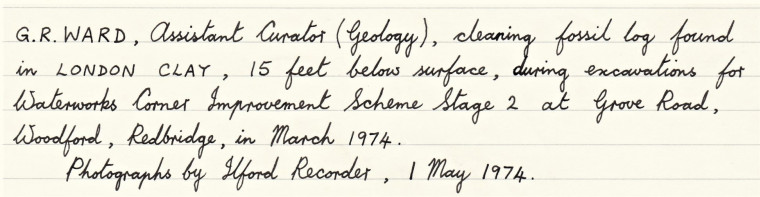 G.R. WARD, Assistant Curator (Geology), cleaning fossil log found
in LONDON CLAY, 15 feet below surface, during excavations for
Waterworks Corner Improvement Scheme Stage 2 at Grove Road,
Woodford, Redbridge, in March 1974.
Photographs by Ilford Recorder, 1 May 1974.